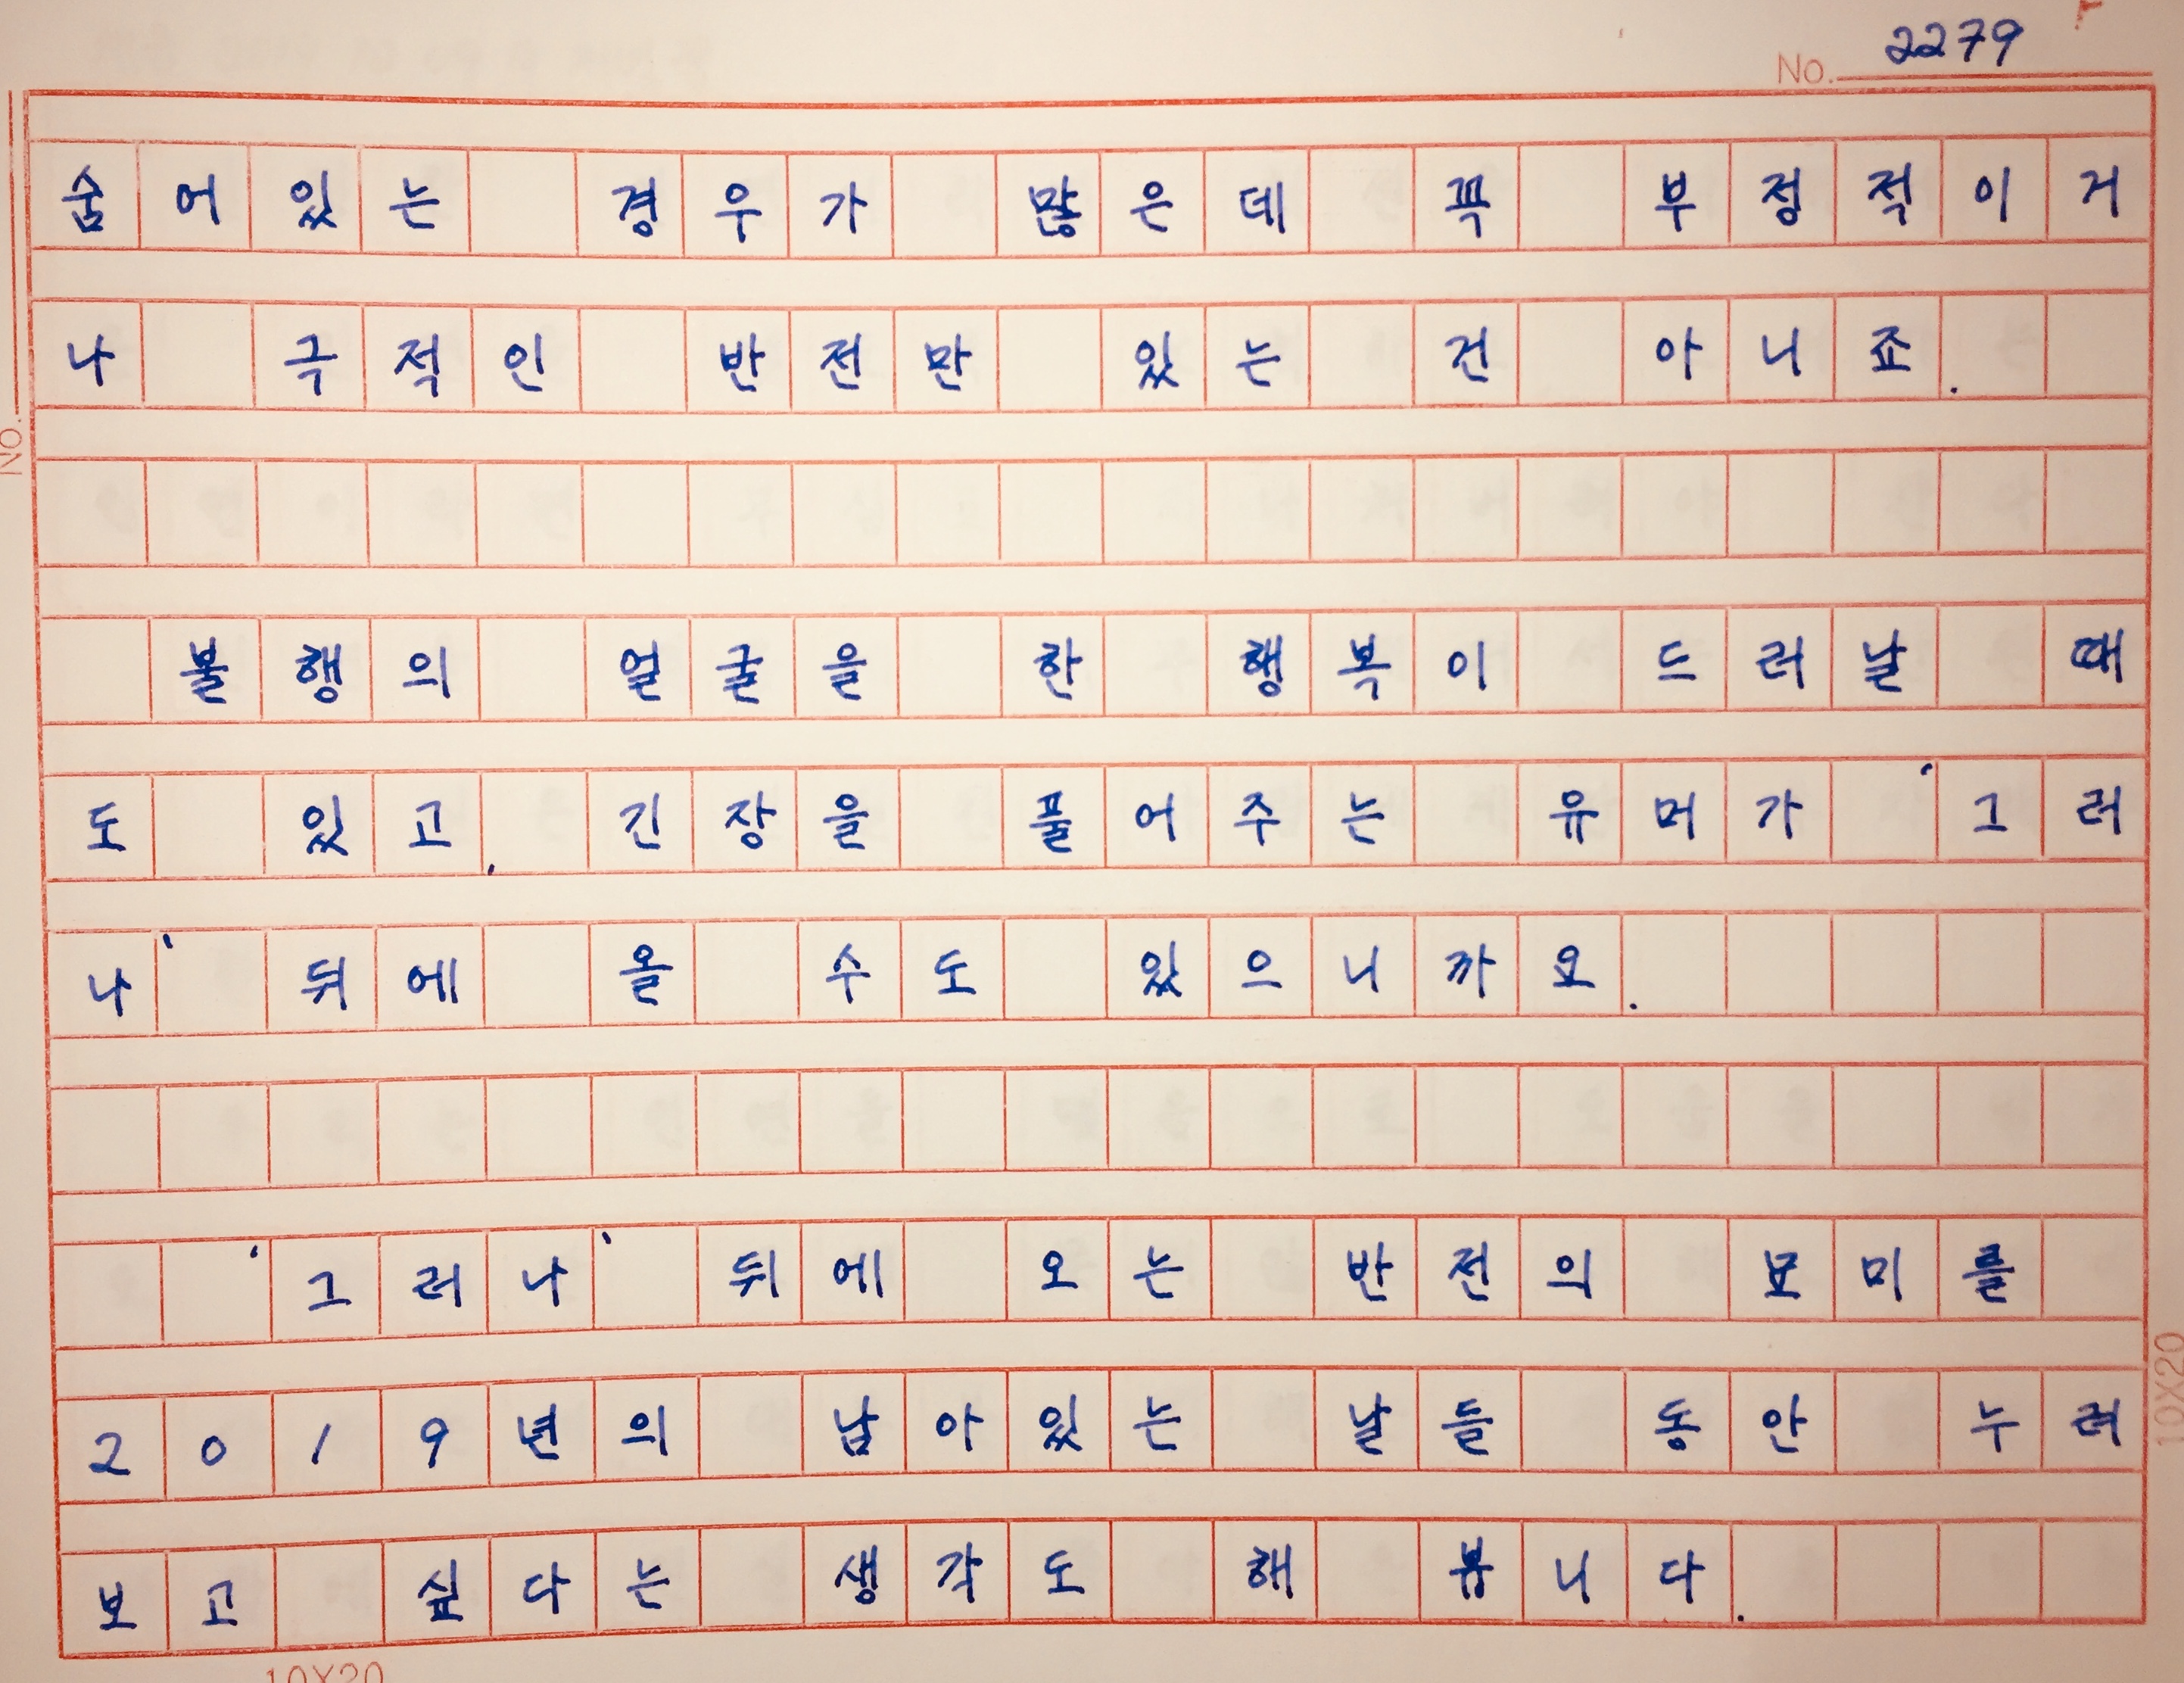 No. 2279
숨어있는 경우가 많은데 꼭 부정적이거
나 극적인 반전만 있는 건 아니죠.
불행의 얼굴을 한 행복이 드러날 때
도 있고, 긴장을 풀어주는 유머가 '그러
나' 뒤에 올 수도 있으니까요.
'그러나' 뒤에 오는 반전의 묘미를
2019년의 남아있는 날들 동안 누려
보고 싶다는 생각도 해 봅니다.
No.
10X20
10X20